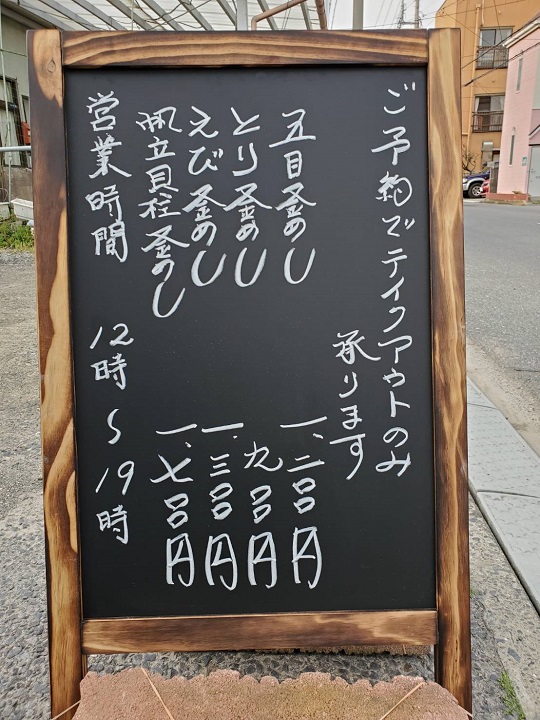 ご予約でテイクアウトのみ
承ります
五目釜めし 一、二〇〇円
とり釜めし 九〇〇円
えび釜めし 一、三〇〇円
帆立貝柱釜めし 一、七〇〇円
営業時間 12時〜19時